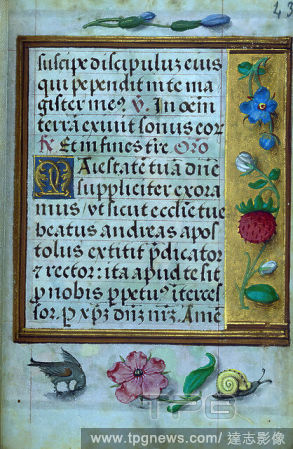 43
suscipe discipuluz eius
qui pependit in te ma
gister me⁹ ℣. In oem̄
terrā exiuit sonus eor
℟ Et in fines tr̄e Oro
Maiestatē tuā dn̄e
suppliciter exora
mus / vt sicut eccl̄ie tue
beatus andreas apos
tolus extitit p̄dicator
⁊ rector: ita apud te sit
p̄ nobis p̄petu⁹ īterces
sor. P xp̄z dn̄z nr̄z. Amē
TPG
www.tpgnews.com/ 達志影像